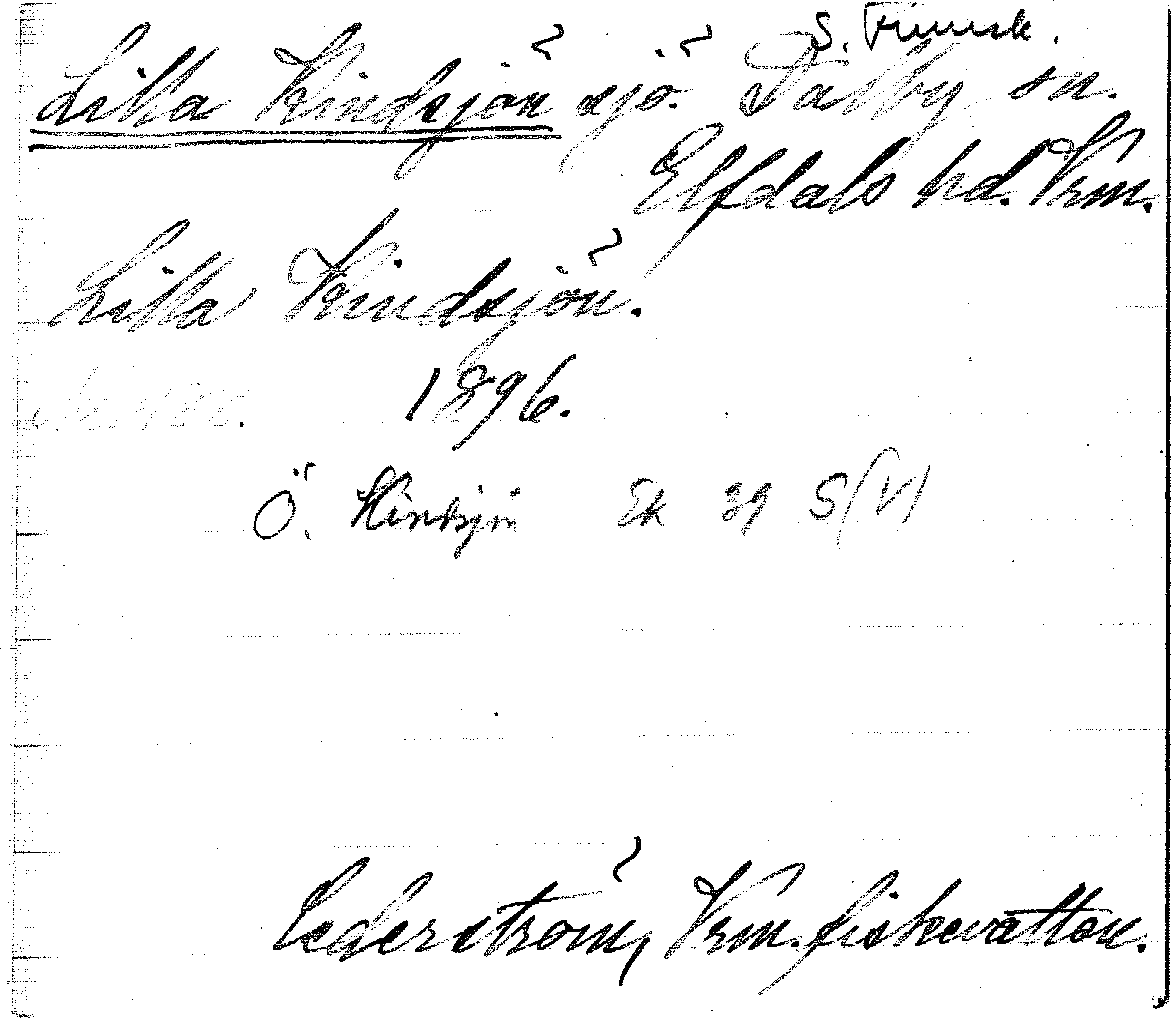 S. Finnsk.
Lilla Kindsjön sjö. Dalby sn.
Elfdals hd. Vrm.
Lilla Kindsjön.
1896.
Ö. Kindsjön Ek 39 S(V)
Cederström, Vrm. fiskevatten.